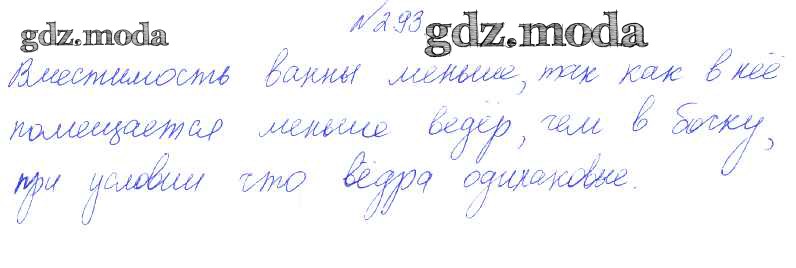 №293
gdz.moda gdz.moda
Вместимость ванны меньше, так как в неё
помещается меньше ведёр, чем в бочку,
при условии что вёдра одинаковые.